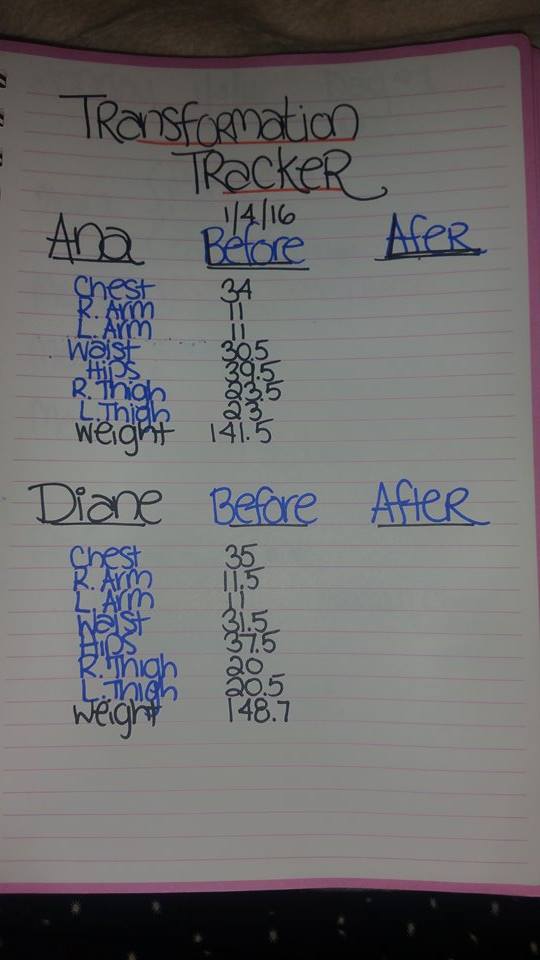 TRansfoRmation
TRackeR
1/4/16
Ana Before AfeR
Chest 34
R. Arm 11
L. Arm 11
Waist 30.5
Hips 39.5
R. Thigh 23.5
L. Thigh 23
weight 141.5
Diane Before AfteR
Chest 35
R. Arm 11.5
L. Arm 11
Waist 31.5
Hips 37.5
R. Thigh 20
L. Thigh 20.5
weight 148.7